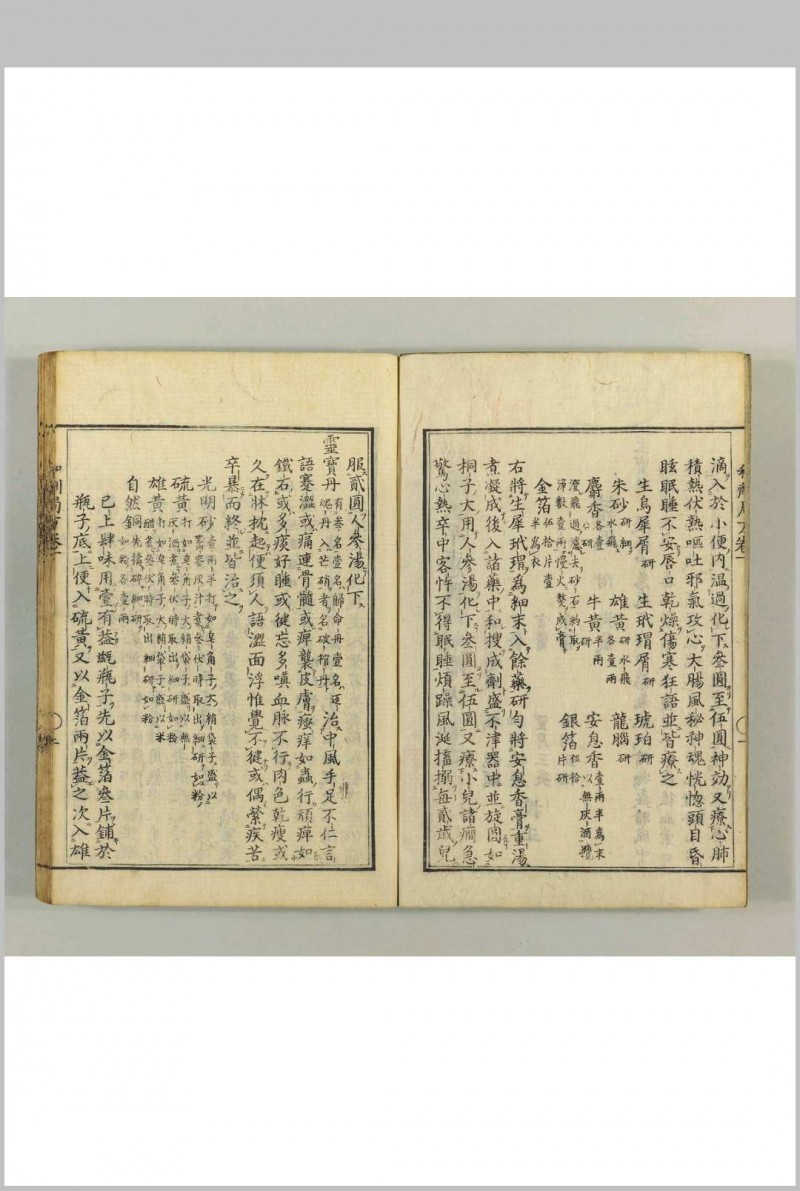 滴入於小便內溫過化下叄圓至伍圓神効又療心肺
積熱伏熱嘔吐邪氣攻心大腸風秘神魂恍惚頭目昏
眩眠睡不安唇口乾燥傷寒狂語並皆療之
生烏犀屑研　生玳瑁屑研　琥珀研
朱砂研細水飛　雄黃研水飛各壹兩　龍腦研
麝香研各壹分　牛黃研半兩　安息香壹兩半爲末以無灰酒攪
澄飛過濾去砂石約取
淨數壹兩慢火熬成膏
金箔伍拾片壹半爲衣　銀箔伍拾片研
右將生犀玳瑁爲細末入餘藥研勻將安息香膏重湯
煮凝成後入諸藥中和搜成劑盛不津器中並旋圓如
桐子大用人參湯化下叄圓至伍圓又療小兒諸癎急
驚心熱卒中客忤不得眠睡煩躁風涎搐搦每貳歲兒
服貳圓人參湯化下
靈寶丹　治中風手足不仁言
語蹇澀或痛連骨髓或痺襲皮膚瘙痒如蟲行頑痺如
鐵石或多痰好睡或健忘多嗔血脉不行肉色乾瘦或
久在牀枕起便須人語澀面浮惟覺不健或偶縈疾苦
卒暴而終並皆治之
光明砂
硫黃
雄黃
自然銅
已上肆味用壹有蓋瓶子先以金箔叄片鋪於
瓶子底上便入硫黃又以金箔兩片蓋之次入雄